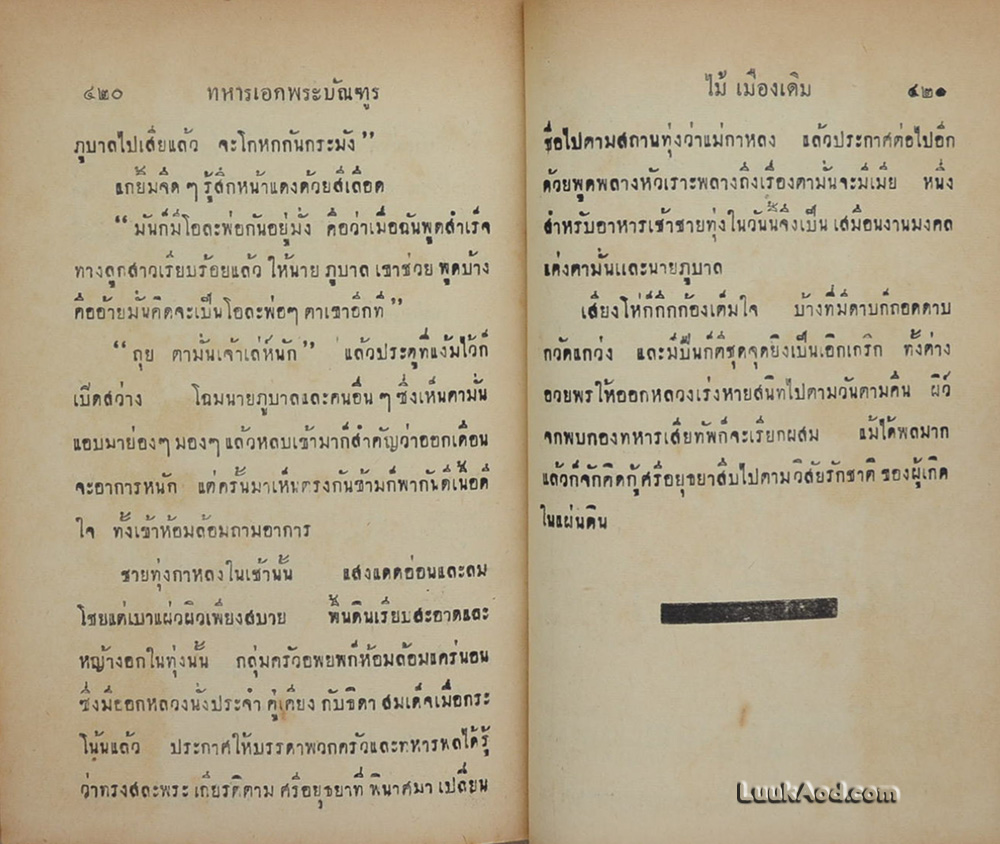 ๔๒๐ ทหารเอกพระบัณฑูร
ภูบาลไปเสียแล้ว จะโกหกกันกระมัง”
แกยิ้มจืด ๆ รู้สึกหน้าแดงด้วยสีเลือด
“มันก็มีโอละพ่อกันอยู่มั่ง คือว่าเมื่อฉันพูดสำเร็จ
ทางลูกสาวเรียบร้อยแล้ว ให้นาย ภูบาล เขาช่วย พูดบ้าง
คืออ้ายมั่นคิดจะเป็นโอละพ่อๆ ตาเขาอีกที”
“ถุย ตามั่นเจ้าเล่ห์นัก” แล้วประตูที่แง้มไว้ก็
เบิดสว่าง โฉมนายภูบาลและคนอื่น ๆ ซึ่งเห็นตามั่น
แอบมาย่องๆ มองๆ แล้วหลบเข้ามาก็สำคัญว่าออกเดือน
จะอาการหนัก แต่ครั้นมาเห็นตรงกันข้ามก็พากันดีเนื้อดี
ใจ ทั้งเข้าห้อมล้อมถามอาการ
ชายทุ่งกาหลงในเช้านั้น แสงแดดอ่อนและลม
โชยแต่เบาแผ่วผิวเพียงสบาย พื้นดินเรียบสะอาดและ
หญ้างอกในทุ่งนั้น กลุ่มครัวอพยพก็ห้อมล้อมแคร่นอน
ซึ่งมีออกหลวงนั่งประจำ คู่เคียง กับธิดา สมเด็จเมื่อกระ
โน้นแล้ว ประกาศให้บรรดาพวกครัวและทหารพลได้รู้
ว่าทรงสละพระ เกียรติตาม ศรีอยุธยาที่ พินาศมา เปลี่ยน
ไม้ เมืองเดิม ๔๒๑
ชื่อไปตามสถานทุ่งว่าแม่กาหลง แล้วประกาศต่อไปอีก
ด้วยพูดพลางหัวเราะพลางถึงเรื่องตามั่นจะมีเมีย หนึ่ง
สำหรับอาหารเช้าชายทุ่งในวันนี้จึงเป็น เสมือนงานมงคล
แด่งตามั่นและนายภูบาล
เสียงโห่ก็กึกก้องเต็มใจ บ้างที่มีดาบก็ถอดดาบ
กวัดแกว่ง และมีปืนก็ตีชุดจุดยิงเป็นเอิกเกริก ทั้งต่าง
อวยพรให้ออกหลวงเร่งหายสนิทไปตามวันตามคืน ผิว์
จกพบกองทหารเสียทัพก็จะเรียกผสม แม้ได้พลมาก
แล้วก็จักคิดกู้ศรีอยุธยาสืบไปตามวิสัยรักชาติ ของผู้เกิด
ในแผ่นดิน
LuukAod.com